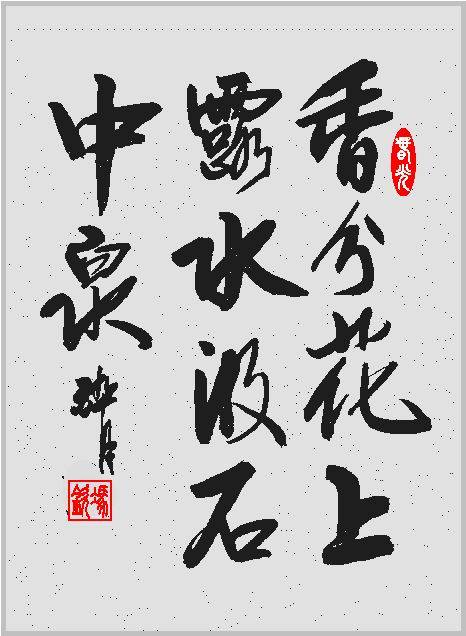 香分花上
露水汲石
中泉